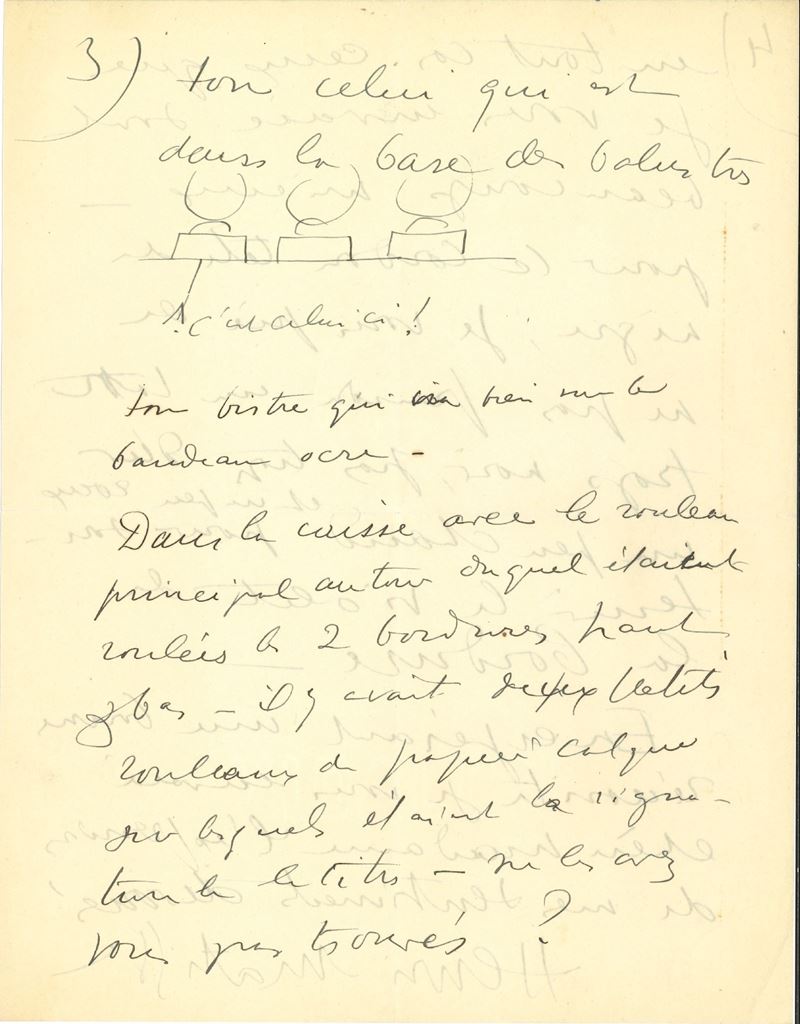 3) ton celui qui est
dans la base des balustres
c'est celui ci !
ton bistre qui ira bien sur le
bandeau ocre -
Dans la caisse avec le rouleau
principal autour duquel étaient
roulées les 2 bordures haut
& bas - il y avait deux petits
rouleaux de papier calque
sur lesquels étaient la signa-
ture & le titre - ne les avez
vous pas trouvés ?